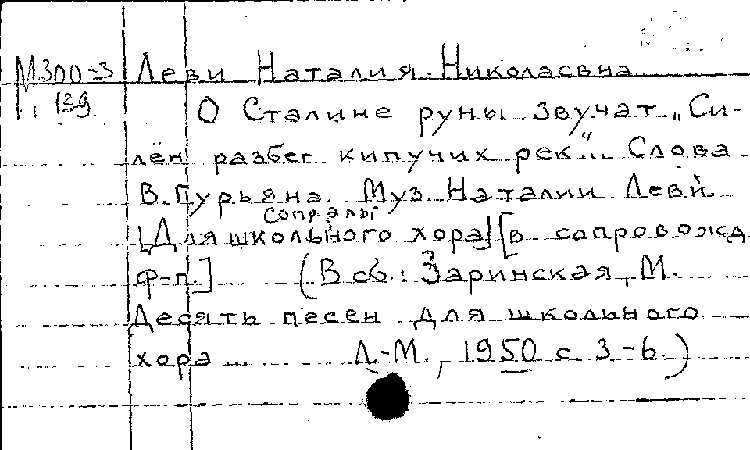 М300-3 Леви Наталия Николаевна
139 О Сталине руны звучат „Си-
лён разбег кипучих рек"... Слова
В. Гурьяна. Муз. Наталии Леви
[Для школьного хора] [в сопровожд
ф-п.] (В сб.: Заринская, М.
Десять песен для школьного
хора ... Л.-М., 1950 с 3-6.)